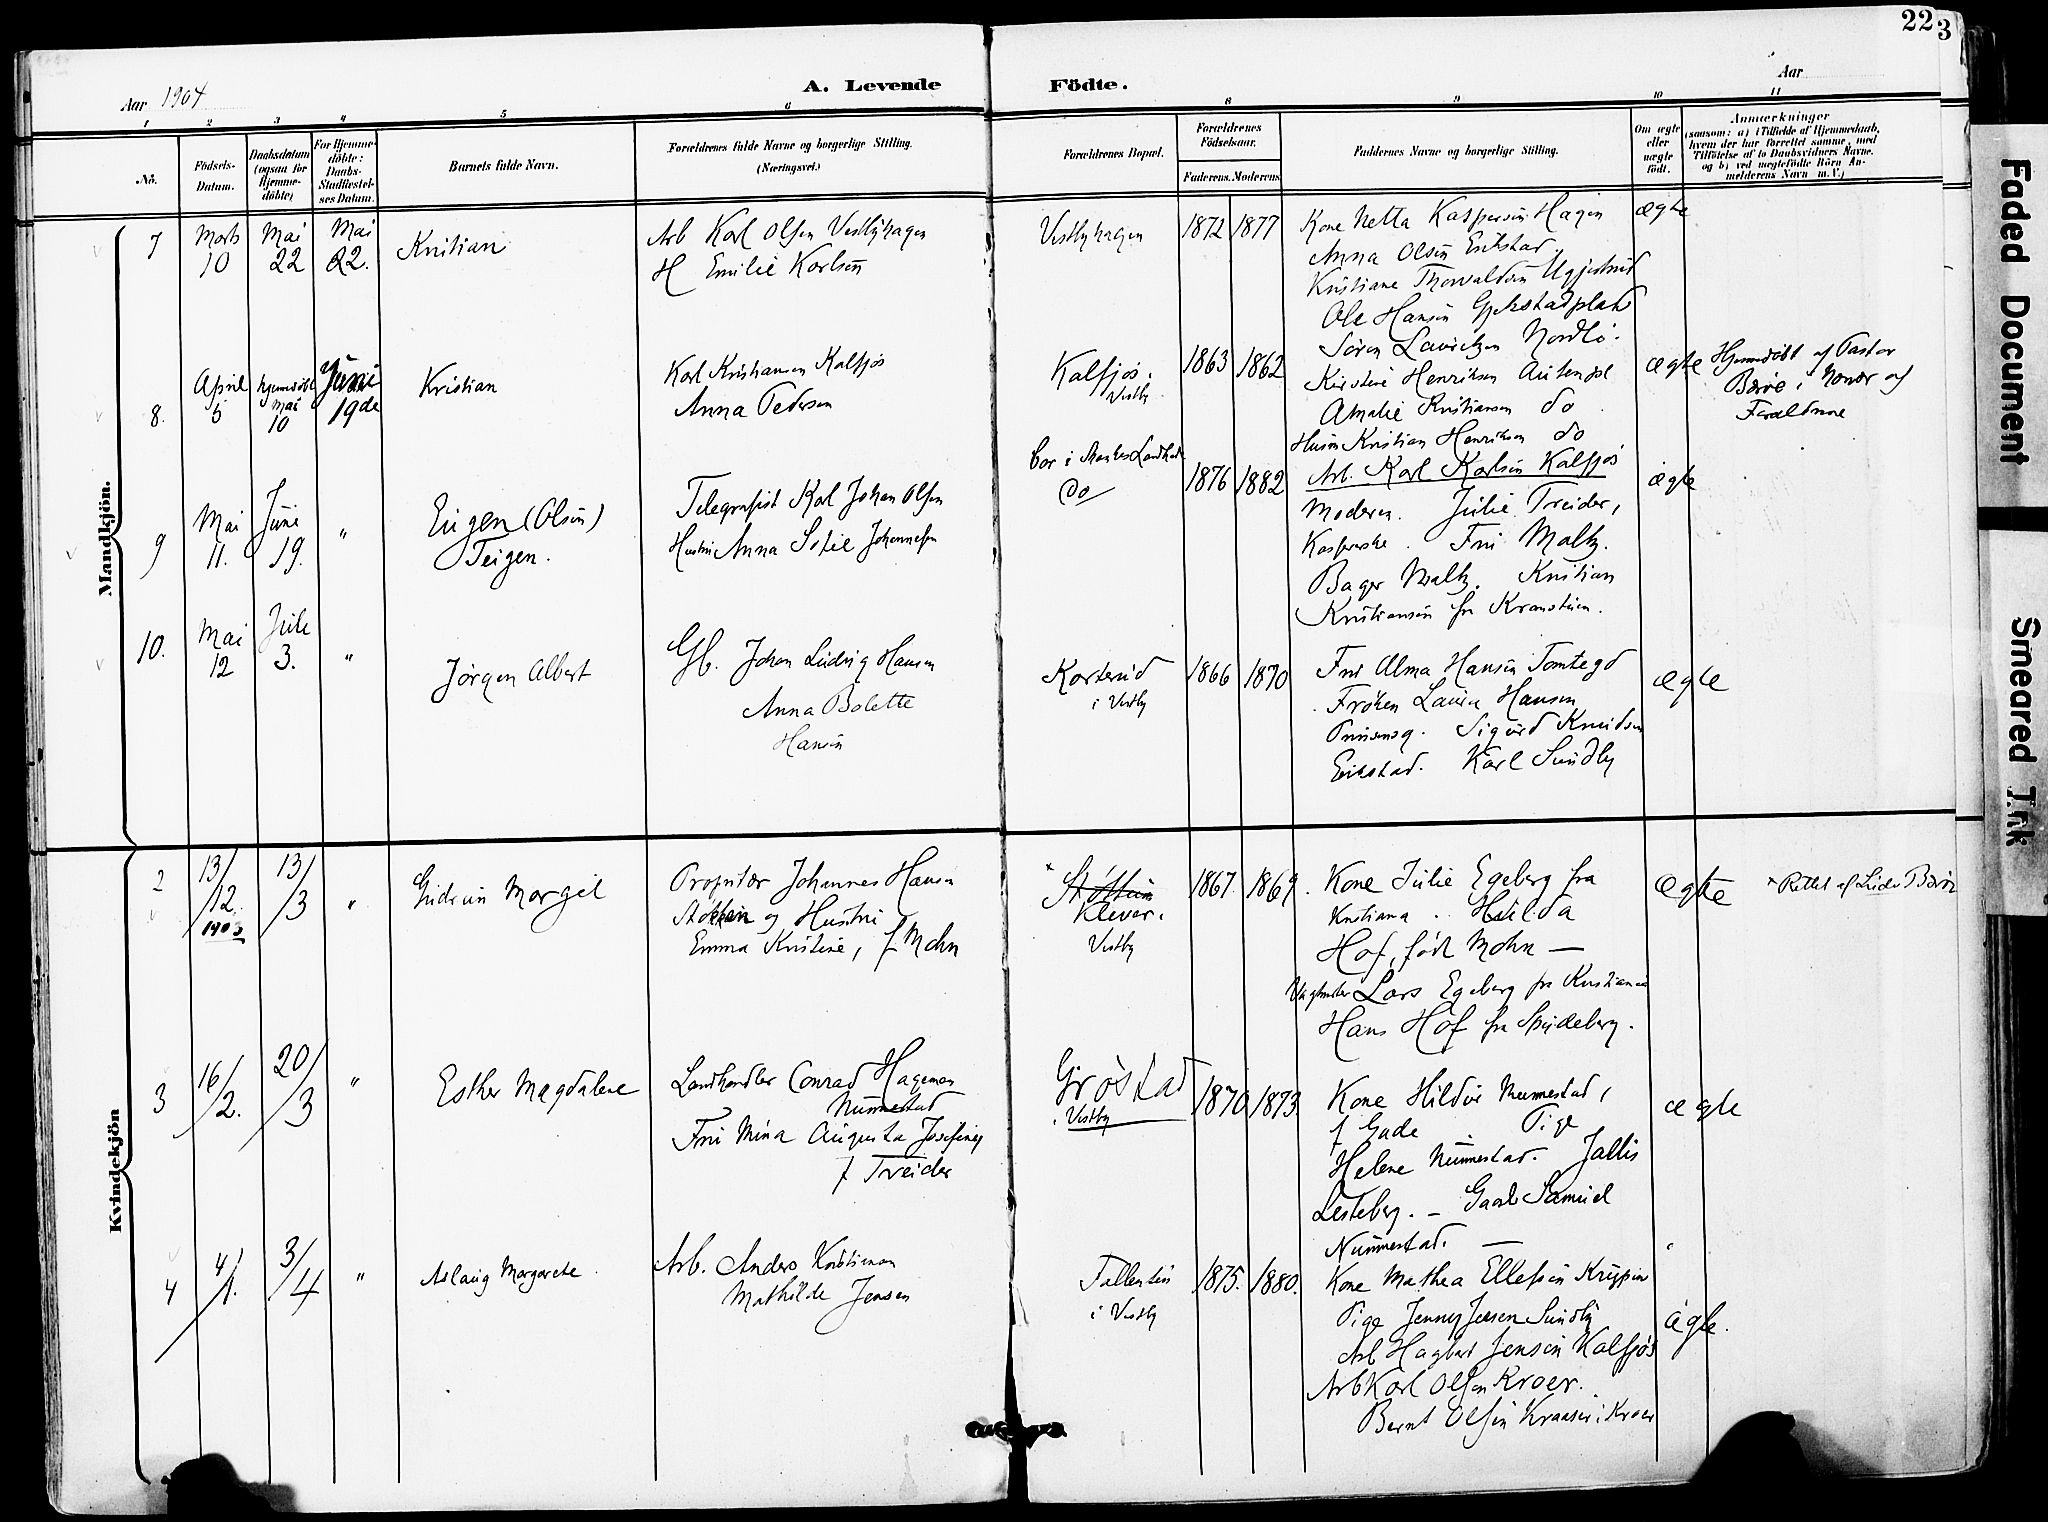 22
3
Aar 1904
A. Levende Födte.
Aar
1 2 3 4 5 6 8 9 10 11
No.
Födsels-Datum.
Daabsdatum (ogsaa for Hjemme-döbte)
For Hjemme-döbte: Daabs-Stadfæstel-ses Datum.
Barnets fulde Navn.
Forældrenes fulde Navne og borgerlige Stilling. (Næringsvei.)
Forældrenes Bopæl.
Forældrenes Födselsaar.
Faderens. Moderens.
Faddernes Navne og borgerlige Stilling.
Om ægte eller uægte födt.
Anmærkninger
(saasom: a) i Tilfælde af Hjemmedaab,
hvem der har forrettet samme, med
Tilföielse af to Daabsvidners Navne.
og b) ved uægtefödte Börn An-
melderens Navn m. V.)
Mandkjön.
7 Marts 10 Mai 22 Mai 22.
Kristian
Arb Karl Olsen Vestbyhagen
H Emilie Karlsen
Vestbyhagen
1872 1877
Kone Netta Kaspersen Hagen
Anna Olsen Erikstad
Kristiane Thorvaldsen
Ole Hansen
Søren Lauritzen Nordli.
ægte
8. April 5 hjemmedöbt Mai 10 Juni 19de
Kristian
Karl Kristiansen Kalfjøs
Anna Pedersen
Kalfjøs.
Vestby
1863 1862
Kirstine Henriksen
Amalie Kristiansen do
Kristian Henriksen do
Arb. Karl Karlsen Kalfjøs
ægte
Hjemmedöbt af Pastor
Barøe i Nærvær af
Forældrene
9 Mai 11. Juni 19. "
Eugen (Olsen)
Teigen.
Telegrafist Karl Johan Olsen
Hustru Anna Sofie Johannesen
bor i
Do
1876 1882
Moderen. Julie Treider,
Fru Maltz.
Bager Maltz. Kristian
Kristiansen fra
ægte
10. Mai 12 Juli 3. "
Jørgen Albert
Gb. Johan Ludvig Hansen
Anna Bolette
Hansen
Korterud
i Vestby
1866 1870
Fru Alma Hansen
Frøken Laura Hansen
Sigurd Knudsen
Erikstad. Karl Sundby
ægte
Kvindekjön
2 13/12. 1903 13/3 "
Gudrun Margit
Proprietær Johannes Hansen
og Hustru
Emma Kristine, f Mohn
Kløver.
Vestby
1867. 1869.
Kone Julie Egeberg fra
Kristiania. Hilda
Hof, født Mohn —
Lars Egeberg fra Kristiania
Hans Hof fra Spydeberg.
ægte
× Rettet af
3 16/2. 20/3 "
Esther Magdalene
Landhandler Conrad Hageman
Nummestad
Fru Mina Augusta Josefine
f Treider
Grøstad
i Vestby
1870 1873.
Kone Hilda Nummestad,
f Gude. Pige
Helene Nummestad.
Lesteberg. – Gaardb Samuel
Nummestad. —
ægte
4 4/1. 3/4 "
Aslaug Margarete
Arb. Anders Kristiansen
Mathilde Jensen
i Vestby
1875. 1880.
Kone Mathea Ellefsen
Pige Jenny Jensen Sundby
Arb Hagbart Jensen Kalfjøs
Arb Karl Olsen Kroer.
Bernt Olsen i Kroer
ægte.
Faded Document
Smeared Ink